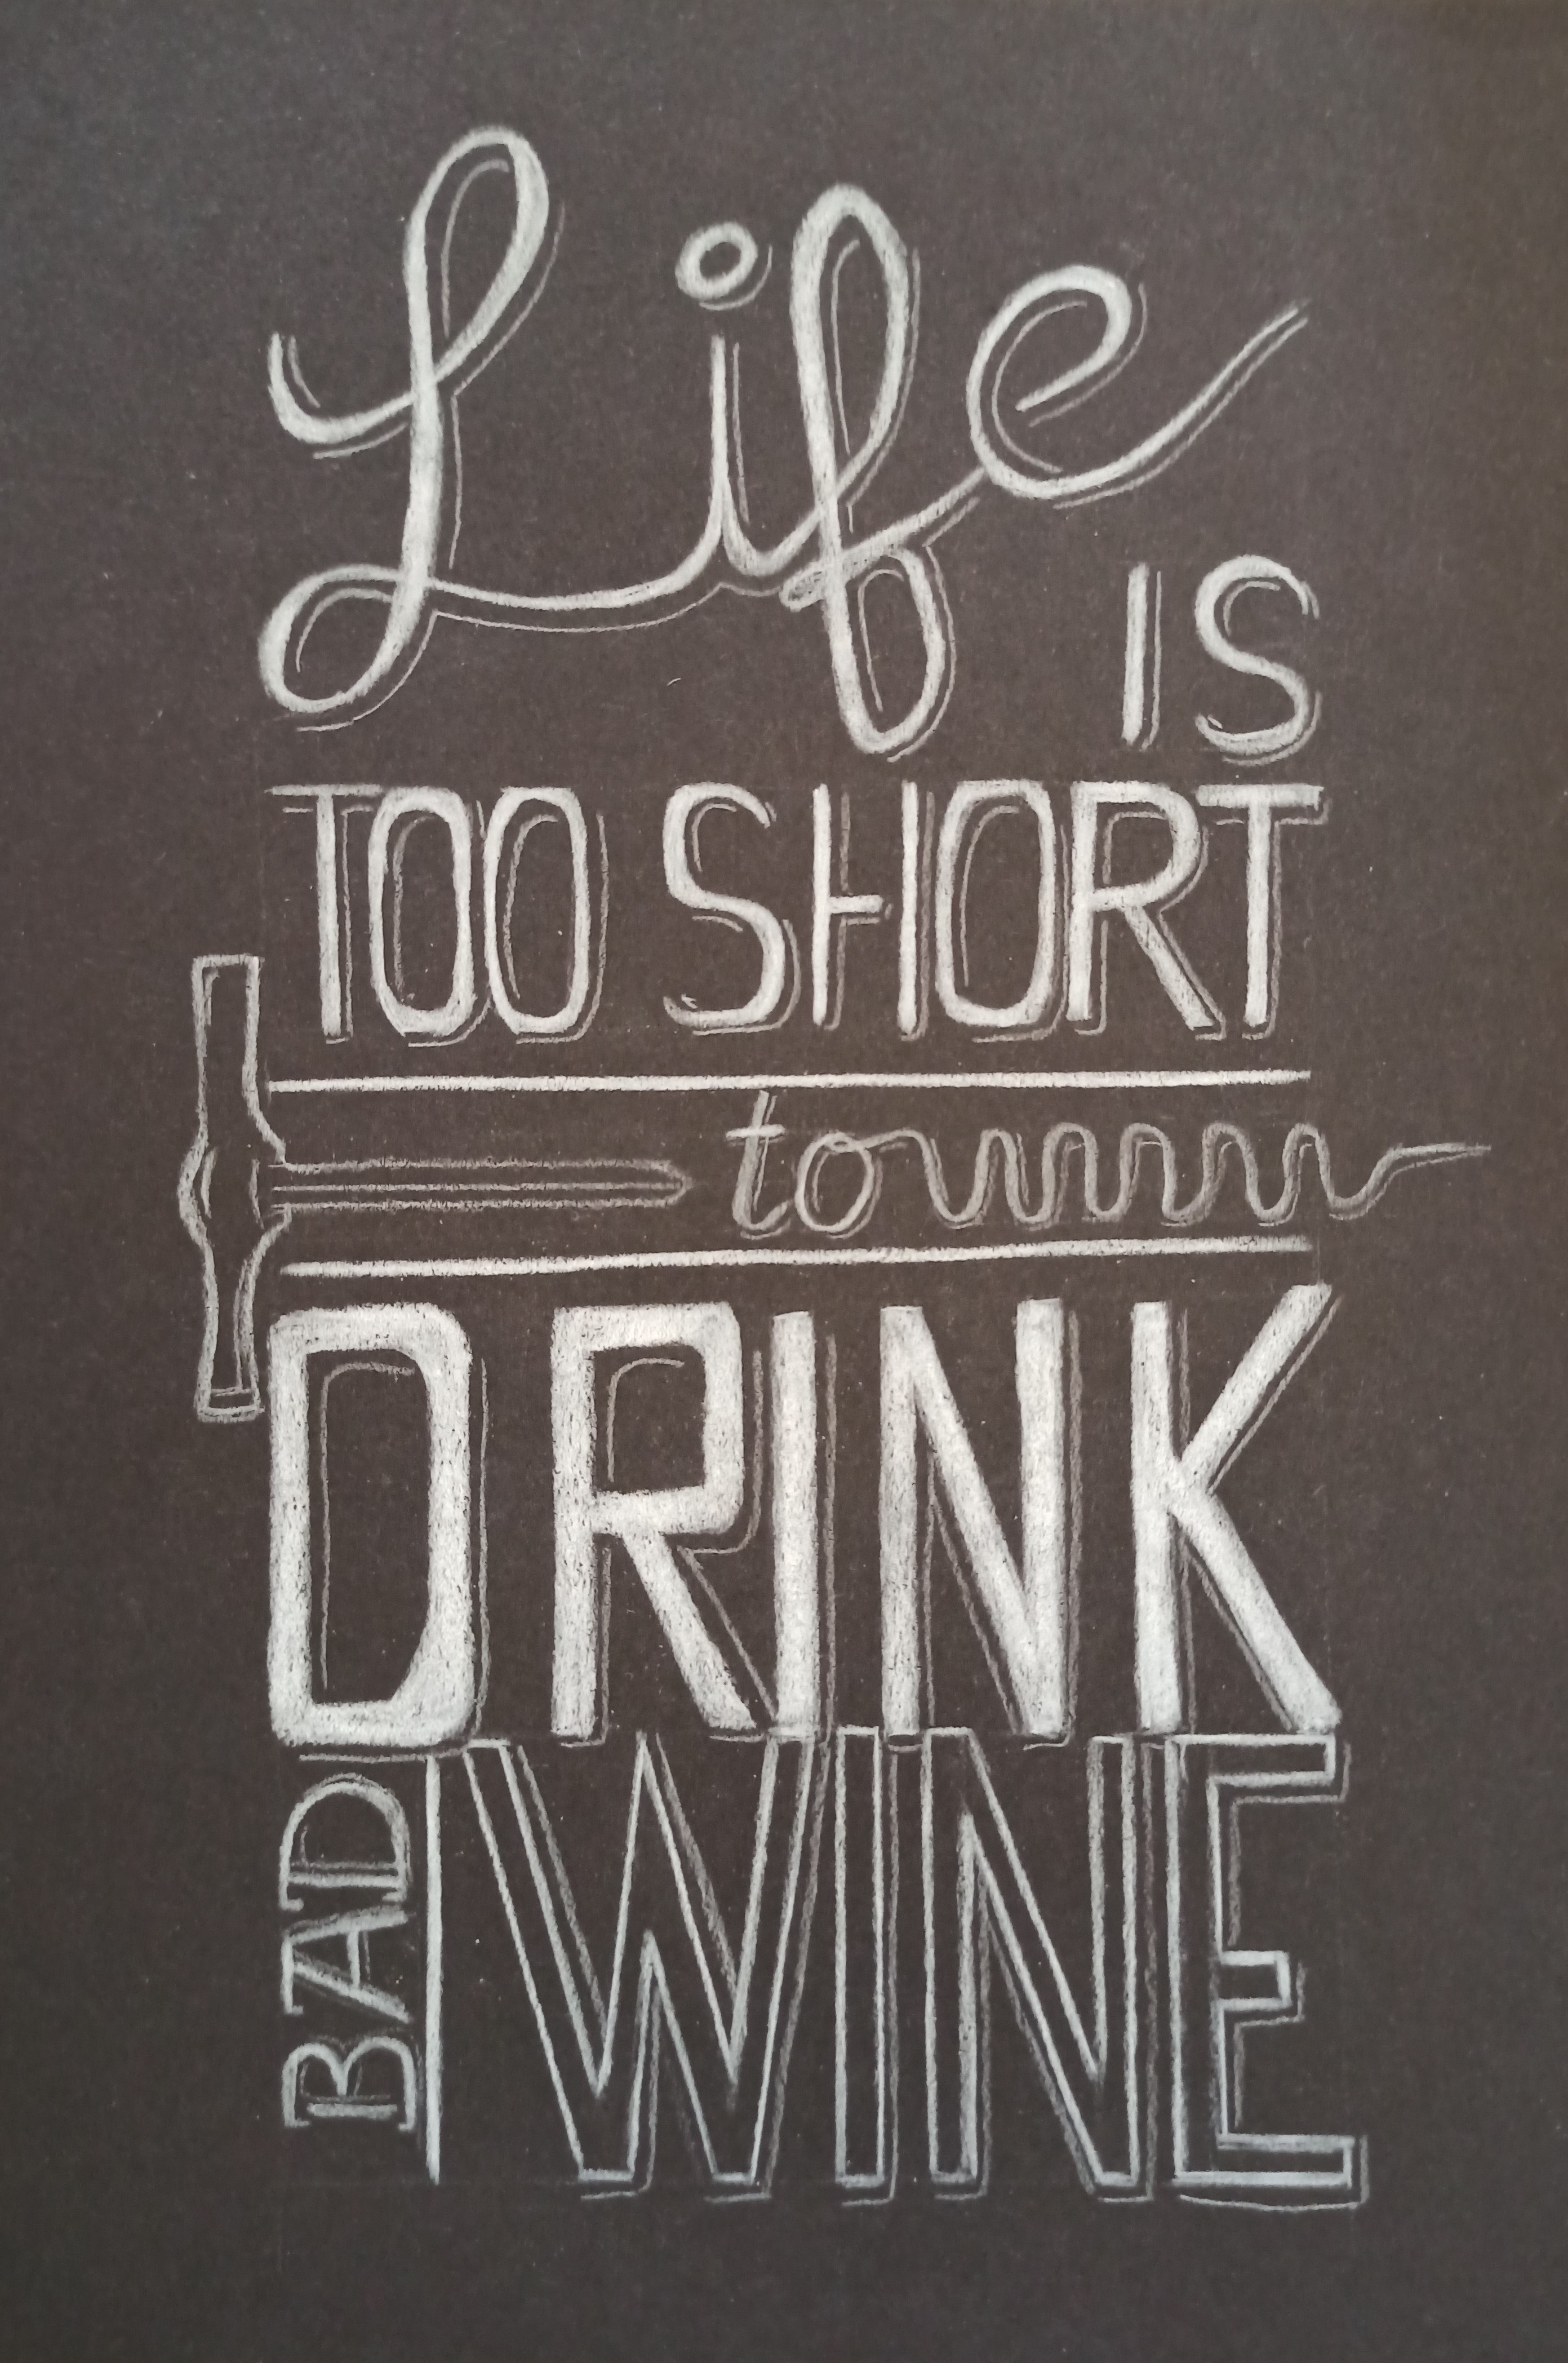 Life
IS
TOO SHORT
to
DRINK
BAD
WINE